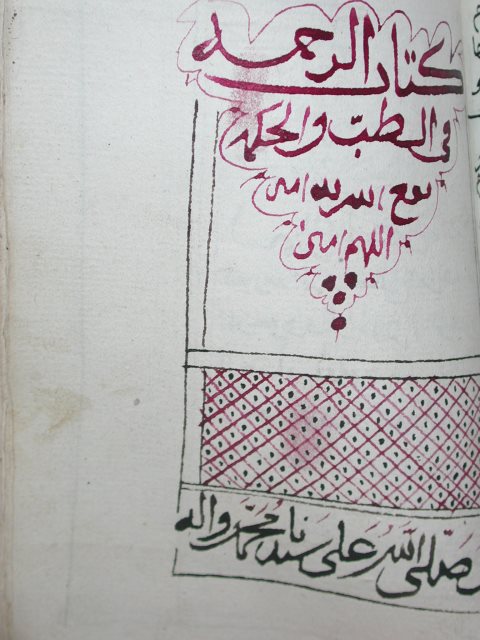 كتاب الرحمة
في الطب والحكمة
نفع الله به امين
اللهم امين
صلى الله على سيدنا محمد واله